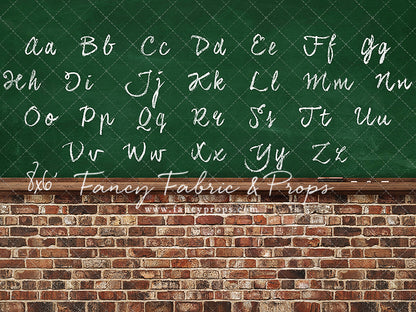 Aa Bb Cc Dd Ee Ff Gg
Hh Ii Jj Kk Ll Mm Nn
Oo Pp Qq Rr Ss Tt Uu
Vv Ww Xx Yy Zz
8x6'
Fancy Fabric & Props
www.fancyprops.com